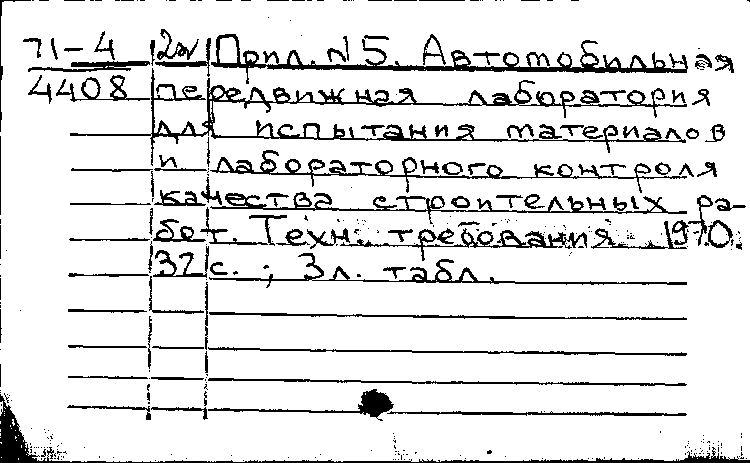 71-4 2эл Прил. N 5. Автомобильная
4408 передвижная лаборатория
для испытания материалов
и лабораторного контроля
качества строительных ра-
бот. Техн. требования 1970.
32 с. ; 3 л. табл.